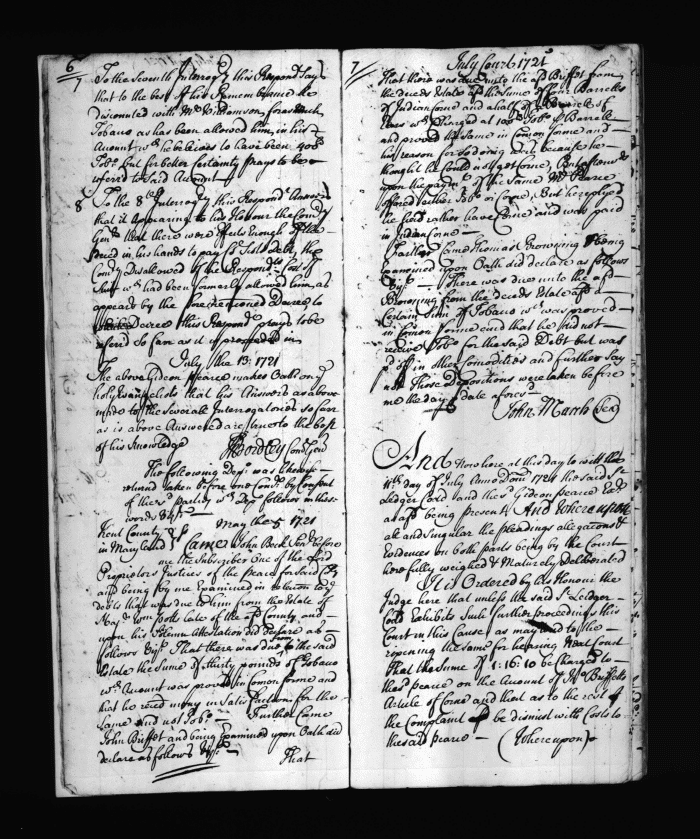 6
7
To the Seventh Interrogy this Respond Says
that to the best of his Remembrance he
discounted with Mr Williamson for as much
Tobacco as has been allowed him in his
Account wch he believes to have been 400
Tobo but for better Certainty prays to be
referrd to said Account
8
To the 8th Interrogy this Respondt Answers
that it appearing to his Honour the Comy
Genll that there were effects enough of the
decd in his hands to pay Sd Debt, the
Comy Disallowed of the Respondts Cost of
Suit wch had been formerly allowed him, as
appears by the forementioned Decree to
which Decree this Respondt prays to be
referrd so far as it is proceeded in
July the 13th 1721
The above Gideon Pearce makes Oath on ye
holy Evangelists that his Answers as above
made to the Several Interrogatories so far
as is above Answered are true to the best
of his Knowledge
TBordley Com Gen
The following Depo was likewise
returnd taken before one Comr by Consent
of the partys wch Depo follows in these
words Vizt
May the 5 1721
Kent County &
in Maryland
Came John Beck Senr before
me the Subscriber One of the Lord
Proprietors Justices of the peace for Said County
and being by me Examined in relation to a
debt that was due to him from the Estate of
Majr Wm Potts late of the afd County and
upon his Solemn Attestation did declare as
follows Vizt That there was due from the said
Estate the Sume of thirty pounds of Tobacco
wch Account was proved in Comon forme and
that he recd mony in Satisfaction for the
Same and not Tobo Further Came
John Buffet and being Examined upon Oath did
declare as follows Vizt
That
7
July Court 1721
That there was due unto the afd Buffet from
the deceds Estate afd the Sume of four Barrells
of Indian Corne and a half
wch Charged at 100 Tobo Barrell
and proved the Same in Comon forme and
his reason for so doing was because he
thought he Could not get Corne, But
upon the paymt of the Same Mr Pearce
offered either Tobo or Corne, But he replyed
he had rather have Corne and was paid
in Indian Corne
Further Came Thomas Browning & being
examined upon Oath did declare as follows
Vizt There was due unto the afd
Browning from the deceds Estate afd a
Certain Sum of Tobacco wch was proved
in Comon forme and that he did not
receive Tobo for the said Debt but was
pd off in other Comodities and further Say
not These depositions were taken before
me the day & date above
John March Sea
And Now here at this day to witt the
11th day of July Anno Dom 1721 the said St
Ledger Codd and the sd Gideon Pearce
as afd being present And Whereupon
all and Singular the pleadings allegations &
Evidences on both parts being by the Court
here fully weighed & Maturely Deliberated
It is Ordered by his Honour the
Judge here that unless the said St Ledger
Codd Exhibits Such further proceedings this
Court in this Cause as may tend to the
ripening the same for hearing Next Court
That the Sume of 1:16:10 be Charged to
the sd pearce on the Account of Mr Buffetts
Article of Corne and that as to the rest of
the Complaint be dismist with Costs to
the said pearce (Whereupon)